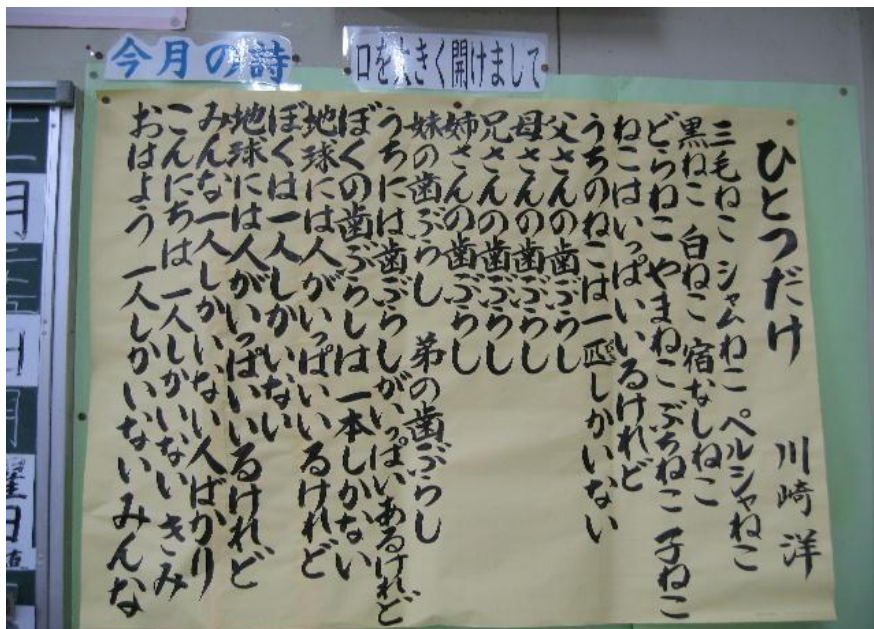 今月の詩
口を大きく開けまして
ひとつだけ
川崎洋
三毛ねこ シャムねこ ペルシャねこ
黒ねこ 白ねこ 宿なしねこ
どらねこ やまねこ ぶちねこ 子ねこ
ねこはいっぱいいるけれど
うちのねこは一匹しかいない
父さんの歯ぶらし
母さんの歯ぶらし
兄さんの歯ぶらし
姉さんの歯ぶらし
妹の歯ぶらし 弟の歯ぶらし
うちには歯ぶらしがいっぱいあるけれど
ぼくの歯ぶらしは一本しかない
地球には人がいっぱいいるけれど
ぼくは一人しかいない
地球には人がいっぱいいるけれど
みんな一人しかいない人ばかり
こんにちは 一人しかいないきみ
おはよう 一人しかいないみんな
月
日